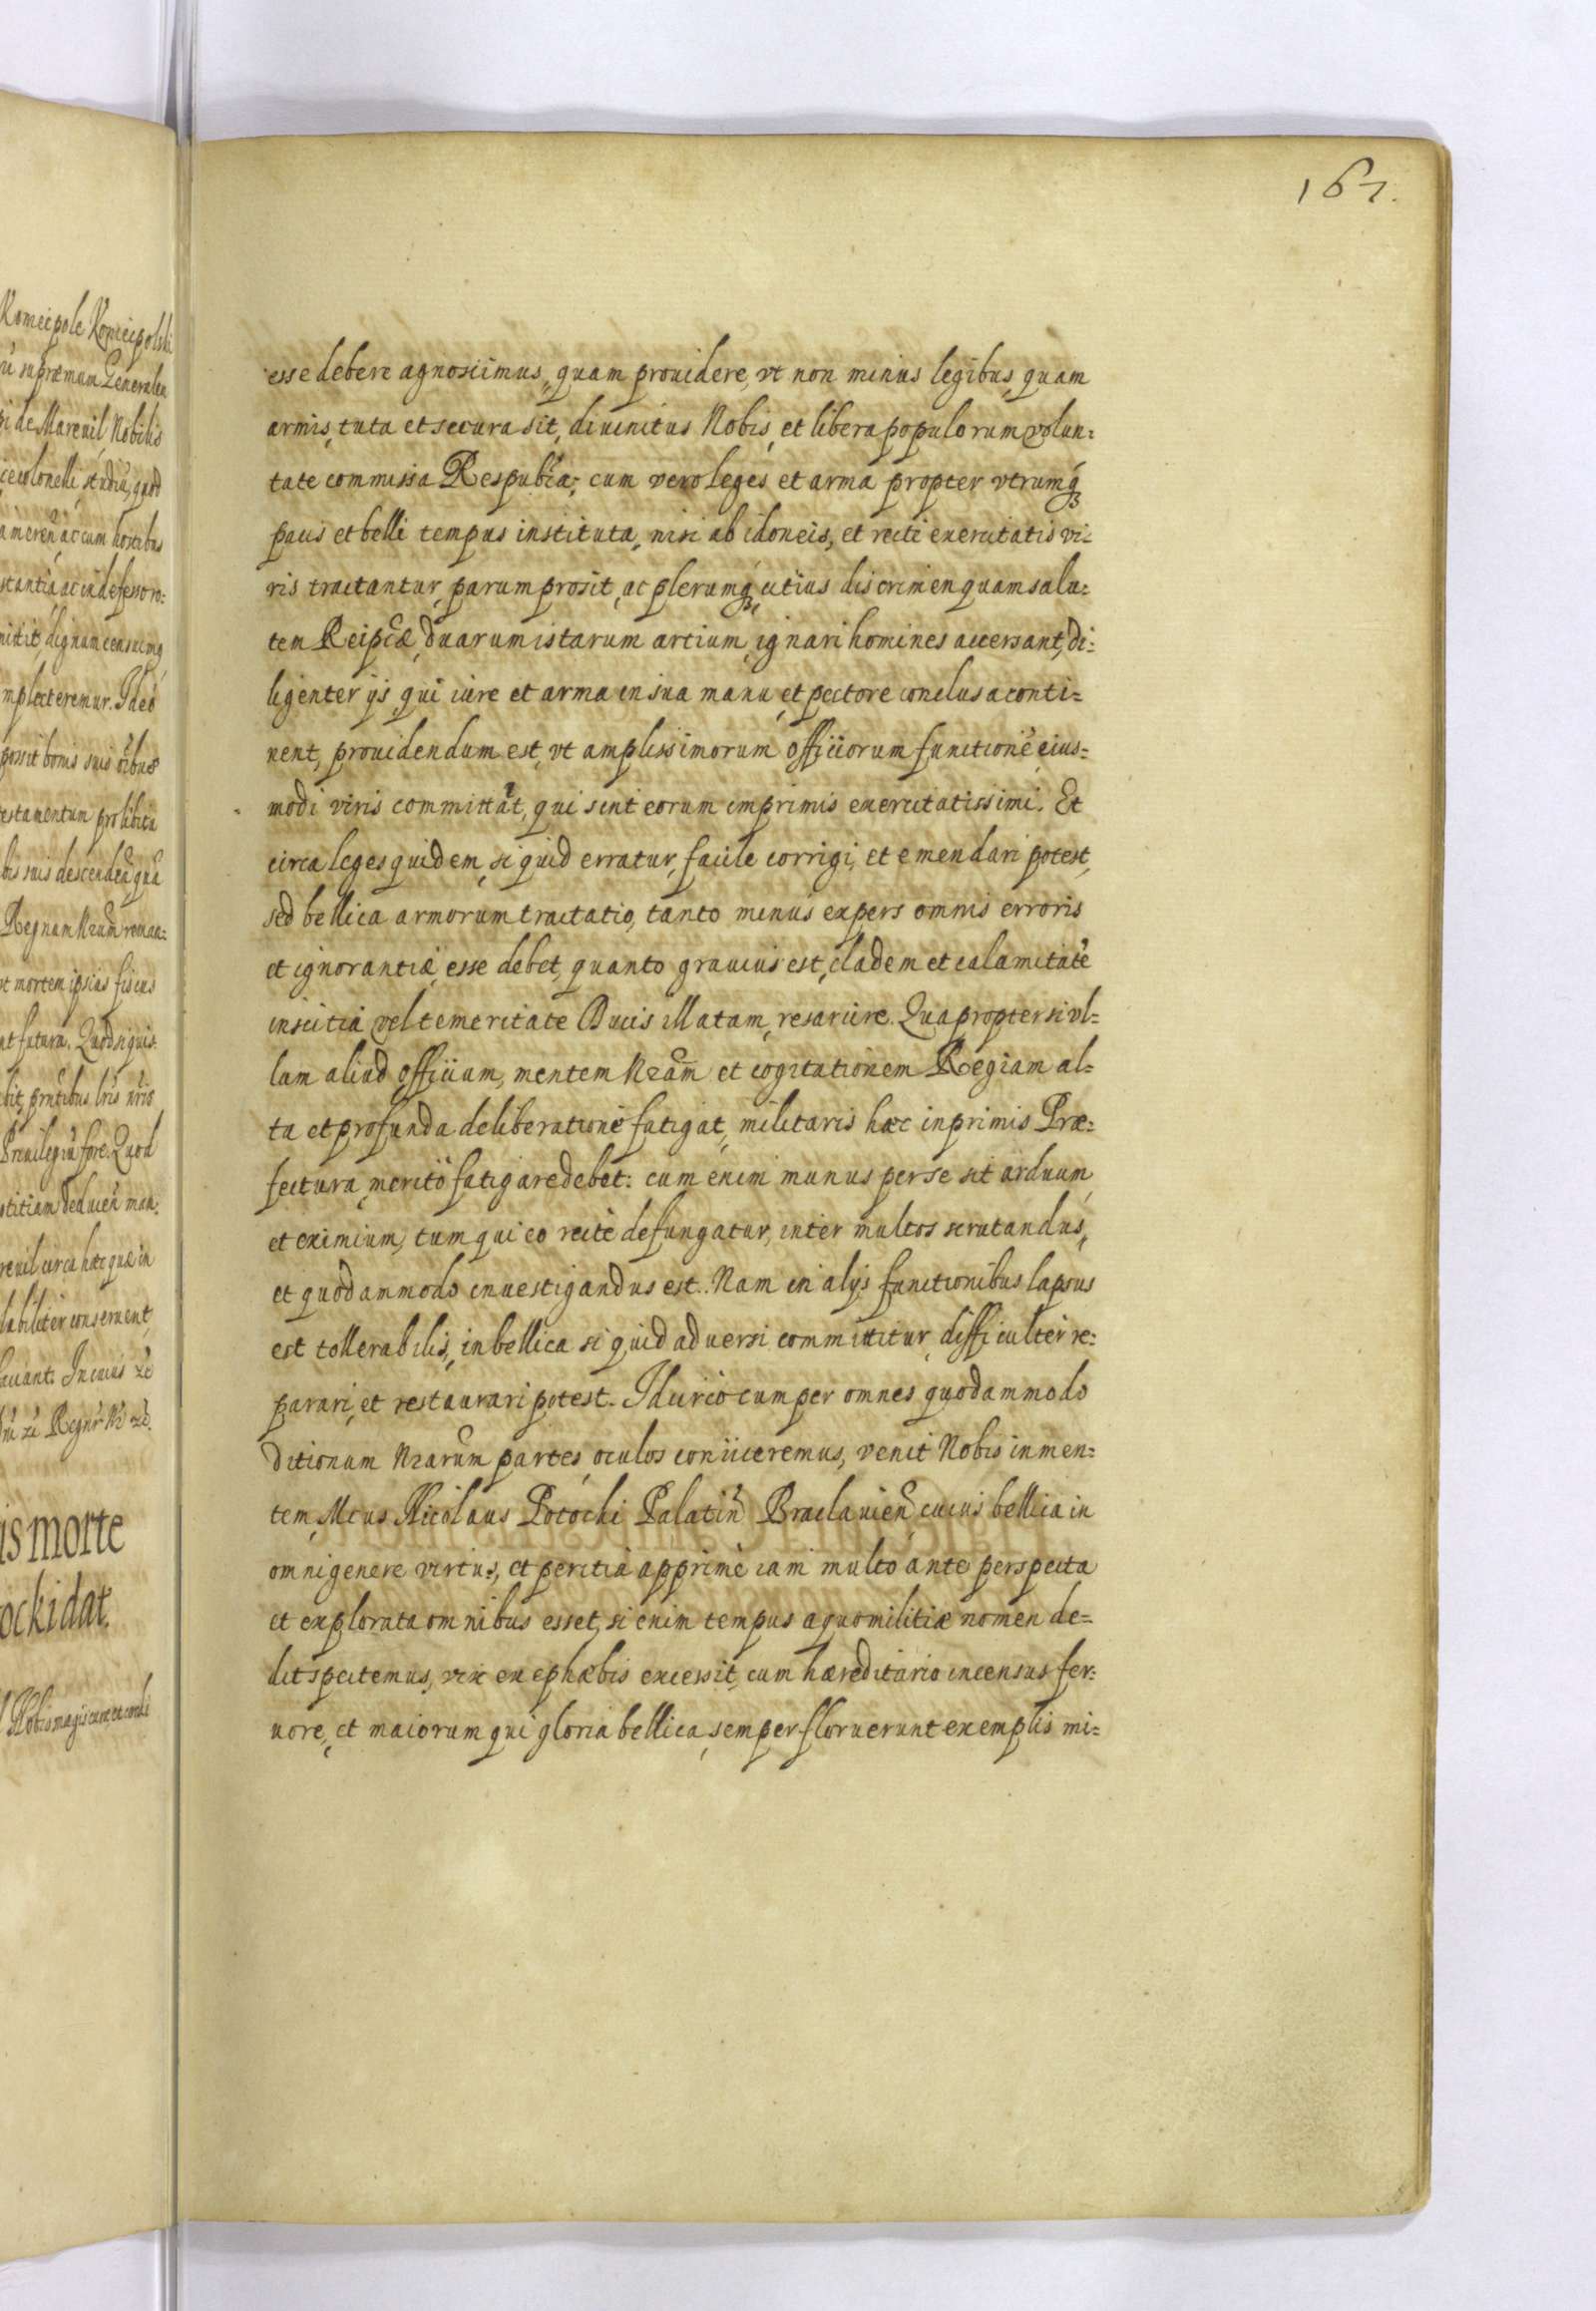 Koniecpole Koniecpolski
ũ supræmum Generalem
ri de Mareuil Nobilis
cecolonelli studiũ, quod
a meren̄ ac cum hostibus
stantia, ac indefesso ro:
mittit, dignum censuimꝰ
mplecteremur. Ideo
possit bonis suis oībus
estamentum pro libitu
bis suis descenden̄
Regnum Nr̄um reman:
st mortem ipsius fiscus
nt futura. Quod si quis
bit, prn̄tibus lr̄is nr̄is
Priuilegiũ fore. Quod
stitiam deducen̄ man:
reuil circa hæc quæ in
labiliter conseruent,
auant. In cuius
Regnr̄
is morte
ockidat.
Nobis magis curæ et cordi
167.
esse debere agnoscimus, quam prouidere, vt non minus legibus, quam
armis, tuta et secura sit, diuinitus Nobis, et libera populorum volun=
tate commissa Respubl͠ca; cum vero leges et arma propter vtrumq́ꝫ
pacis et belli tempus instituta, nisi ab idoneis, et recte exercitatis vi:
ris tractantur, parum prosit, ac plerumq́ꝫ citius discrimen quam salu:
tem Reipc̃æ, duarum istarum artium, ignari homines accersant, di:
ligenter ijs, qui iure et arma in sua manu, et pectore conclusa conti=
nent, prouidendum est, vt amplissimorum officiorum functionē, eius=
modi viris committāt, qui sint eorum imprimis exercitatissimi. Et
circa leges quidem, si quid erratur, facile corrigi, et emendari potest,
sed bellica armorum tractatio, tanto minus expers omnis erroris
et ignorantiæ, esse debet, quanto grauius est, cladem et calamitatē
inscitia, vel temeritate Ducis illatam, resarcire. Quapropter si vl=
lum aliud officium, mentem Nr̃am et cogitationem Regiam al=
ta et profunda deliberatione fatigat, militaris hæc inprimis Præ=
fectura, meritò fatigare debet: cum enim munus per se sit arduum,
et eximium, tum qui eo rectè defungatur, inter multos scrutandus,
et quodammodo inuestigandus est. Nam in alijs functionibus lapsus
est tollerabilis, in bellica si quid aduersi committitur, difficulter re:
parari, et restaurari potest. Idcirco cum per omnes quodammodo
ditionum Nr̃arum partes, oculos coniiceremus, venit Nobis in men=
tem, Mcus Nicolaus Potocki Palatin̄ Braclauien̄ cuius bellica in
omni genere virtus, et peritia apprime iam multo ante perspecta
et explorata omnibus esset, si enim tempus a quo militiæ nomen de=
dit spectemus, vix ex ephæbis excessit, cum hæreditario incensus fer:
uore, et maiorum qui gloria bellica, semper floruerunt exemplis mi=